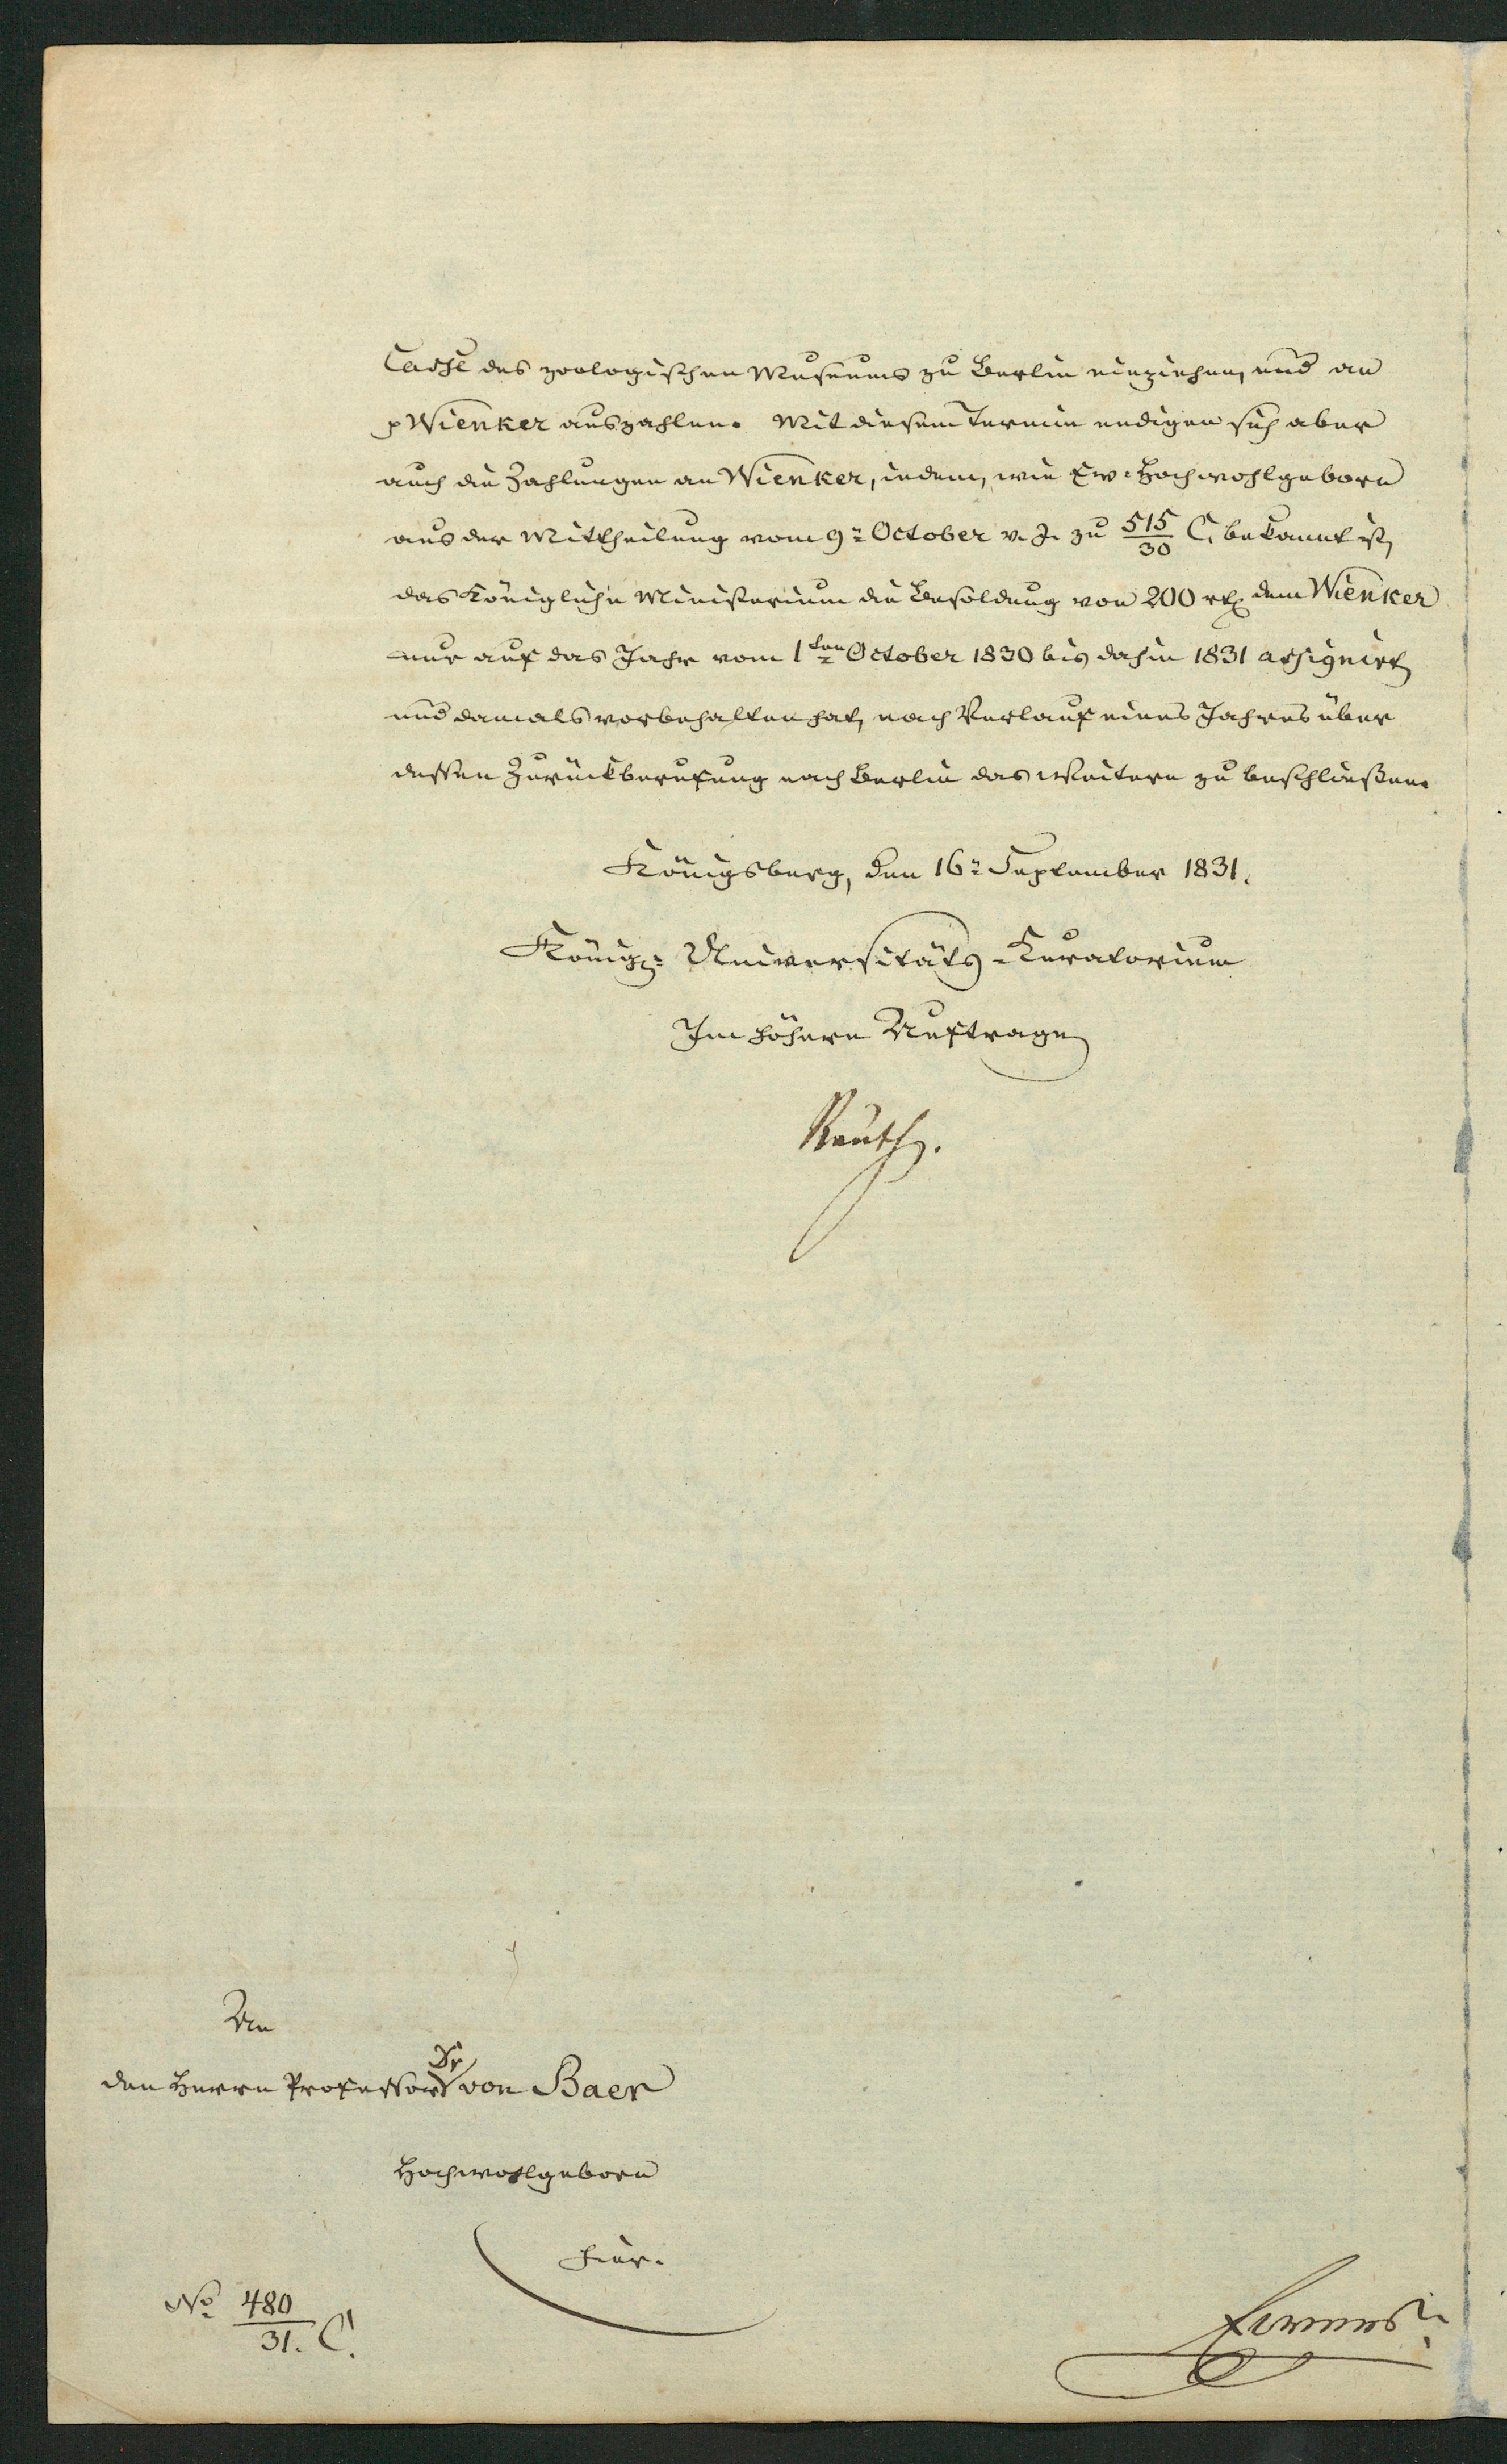 Casse des zoologischen Museums zu Berlin einziehen, und an
p Wienker auszahlen. Mit diesem Termin endigen sich aber
auch die Zahlungen an Wienker, indem, wie Ew. Hochwohlgeborn
aus der Mittheilung vom 9n October v. J. zu 515/30 C. bekannt ist,
das Königliche Ministerium die Besoldung von 200 rtl dem Wienker
nur auf das Jahr vom 1ten October 1830 bis dahin 1831 assignirt,
und damals vorbehalten hat, nach Verlauf eines Jahres über
dessen Zurückberufung nach Berlin das Weitere zu beschließen.
Königsberg, den 16n September 1831.
Königl: Universitäts-Kuratorium
Im höhern Auftrage
Reusch.
An
den Herrn Professor Dr von Baer
Hochwohlgeborn
hier.
No 480/31. C.